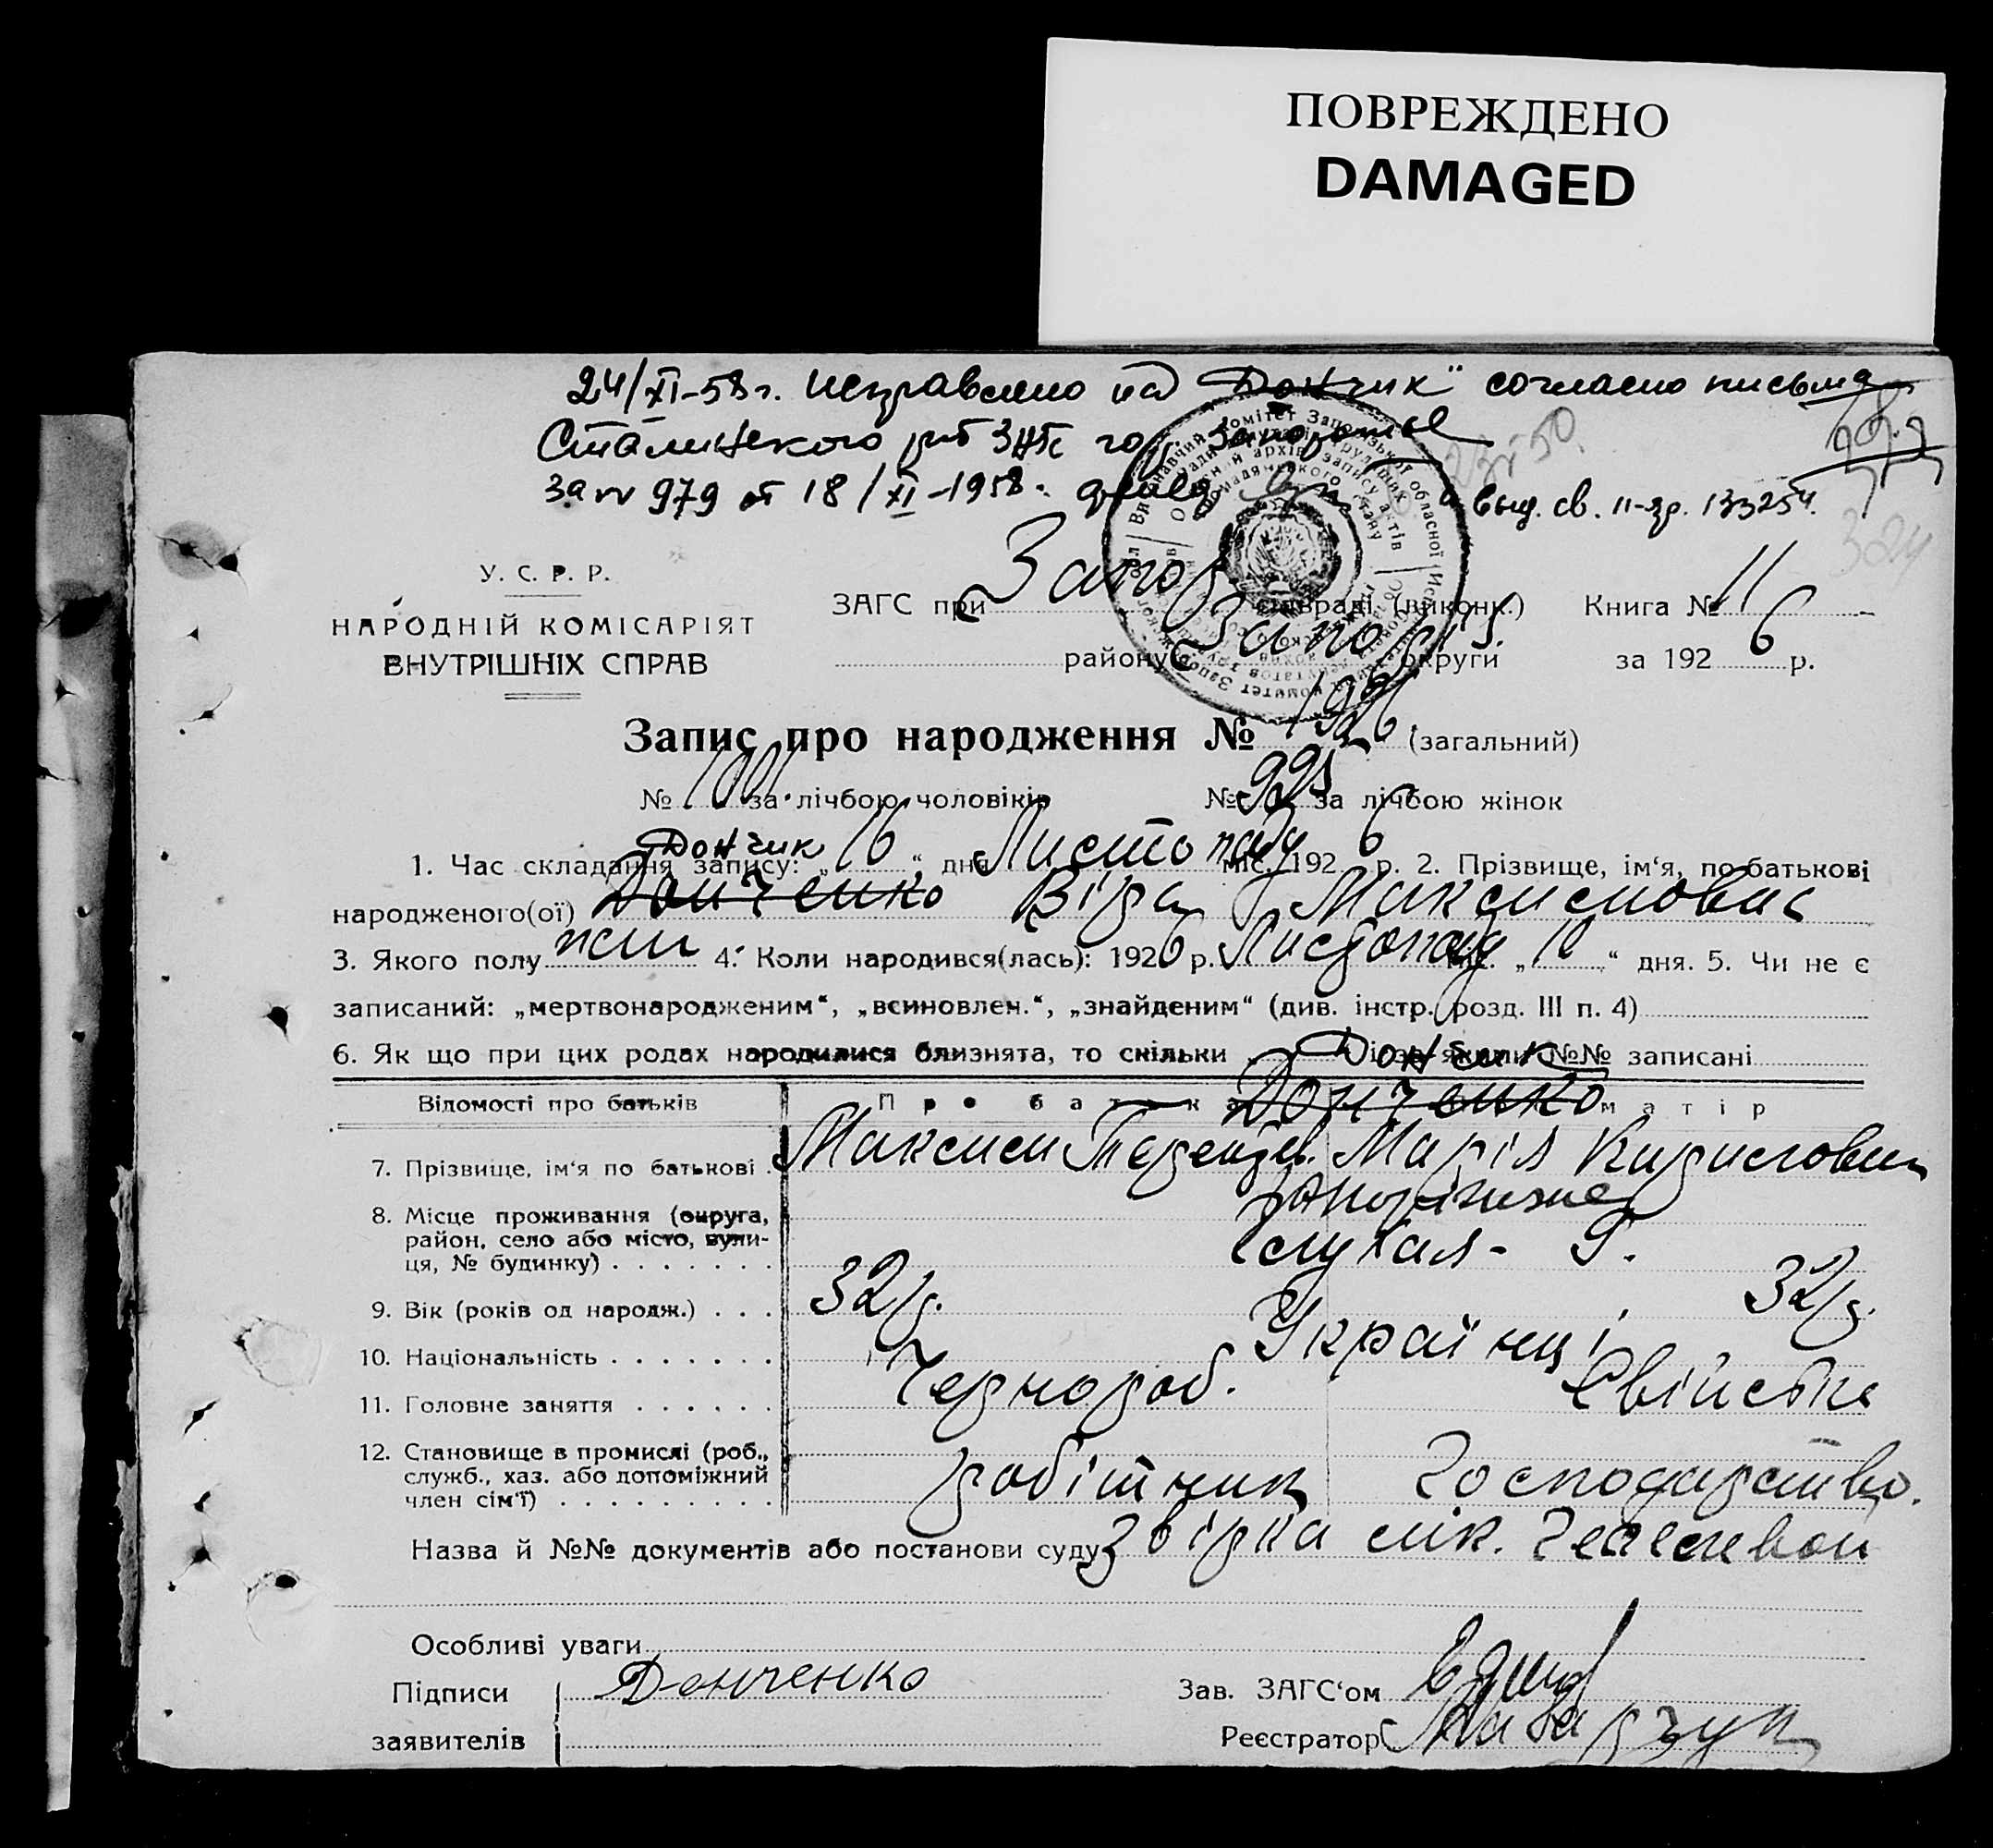 ПОВРЕЖДЕНО
DAMAGED
24/XI-58г. исправлено на „Дончик" согласно письма
Сталинского рыб ЗАГС гор. Запорожье
за № 979 от 18/XI-1958.
выд. св. II-яр. 133254.
У. С. Р. Р.
НАРОДНІЙ КОМІСАРІЯТ
ВНУТРІШНІХ СПРАВ
ЗАГС при Запор (виконк.) Книга № 11
району Запоріз округи за 1926 р.
Запис про народження № 1926 (загальний)
№ 1001 за лічбою чоловіків № 925 за лічбою жінок
Дончик
1. Час складання запису: „16" дня Листопаду міс. 1926 р. 2. Прізвище, ім'я, по-батькові
народженого(ої) Донченко Віра Максимовна
3. Якого полу жін 4. Коли народився(лась): 1926 р. Листопаду міс. „10" дня. 5. Чи не є
записаний: „мертвонародженим", „всиновлен.", „знайденим" (див. інстр. розд. III п. 4)
6. Як що при цих родах народилися близнята, то скільки і за якими №№ записані
Дончик
Відомості про батьків Про батька матір
Донченко
7. Прізвище, ім'я по батькові Максим Терентієв. Марія Кирилловна
8. Місце проживання (округа, район, село або місто, вулиця, № будинку) Запоріжжє
9. Вік (років од народж.) 32 р. 32 р.
10. Національність Українці
11. Головне заняття Чернороб. Свійське
12. Становище в промислі (роб., служб., хаз. або допоміжний член сім'ї) робітник Господарство.
Назва й №№ документів або постанови суду звірка лік.
Особливі уваги
Підписи заявителів Донченко
Зав. ЗАГС'ом
Реєстратор